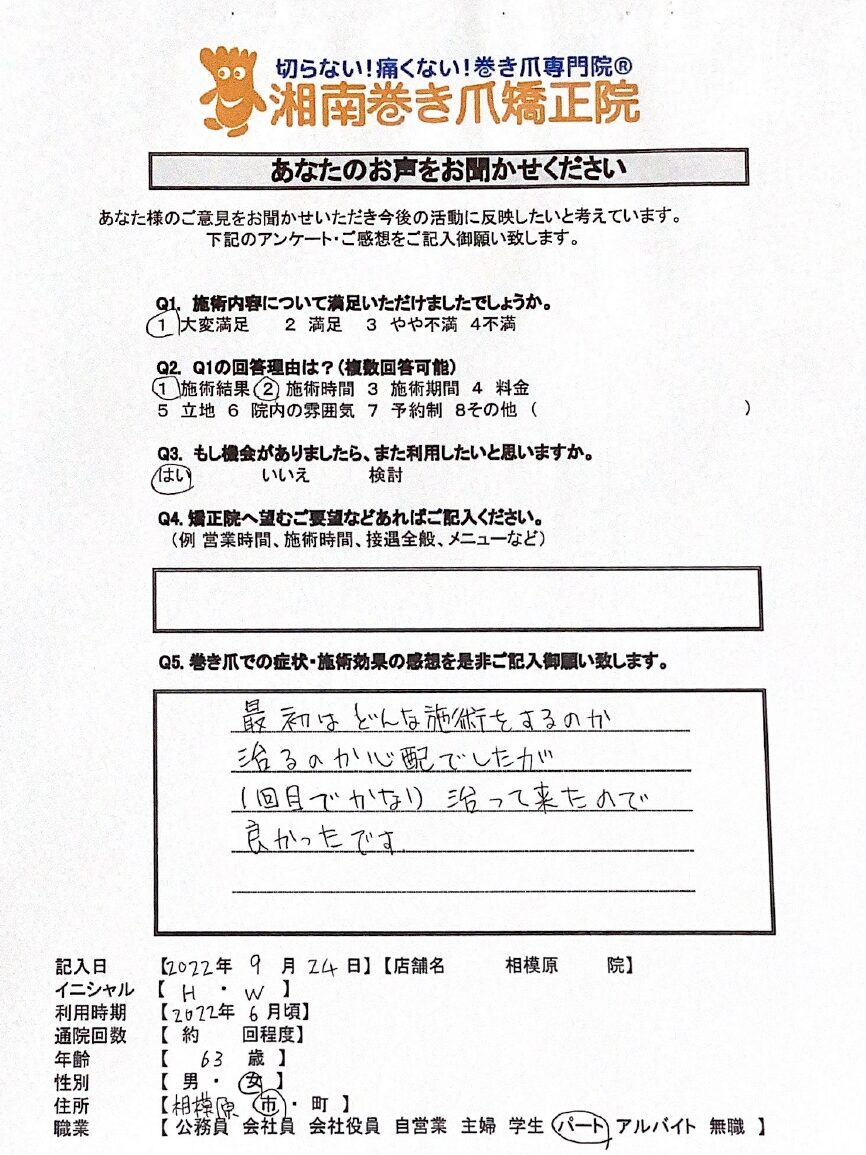 切らない！痛くない！巻き爪専門院®
湘南巻き爪矯正院
あなたのお声をお聞かせください
あなた様のご意見をお聞かせいただき今後の活動に反映したいと考えています。
下記のアンケート・ご感想をご記入御願い致します。
Q1. 施術内容について満足いただけましたでしょうか。
1 大変満足 2 満足 3 やや不満 4不満
Q2. Q1の回答理由は？（複数回答可能）
1 施術結果 2 施術時間 3 施術期間 4 料金
5 立地 6 院内の雰囲気 7 予約制 8その他（ ）
Q3. もし機会がありましたら、また利用したいと思いますか。
はい いいえ 検討
Q4. 矯正院へ望むご要望などあればご記入ください。
（例 営業時間、施術時間、接遇全般、メニューなど）
Q5. 巻き爪での症状・施術効果の感想を是非ご記入御願い致します。
最初はどんな施術をするのか
治るのか心配でしたが
1回目でかなり治って来たので
良かったです.
記入日 【2022年 9 月 24 日】【店舗名 相模原 院】
イニシャル 【 H ・ W 】
利用時期 【2022年 6 月頃】
通院回数 【 約 回程度】
年齢 【 63 歳 】
性別 【 男 ・ 女 】
住所 【相模原 市 ・ 町 】
職業 【 公務員 会社員 会社役員 自営業 主婦 学生 パート アルバイト 無職 】